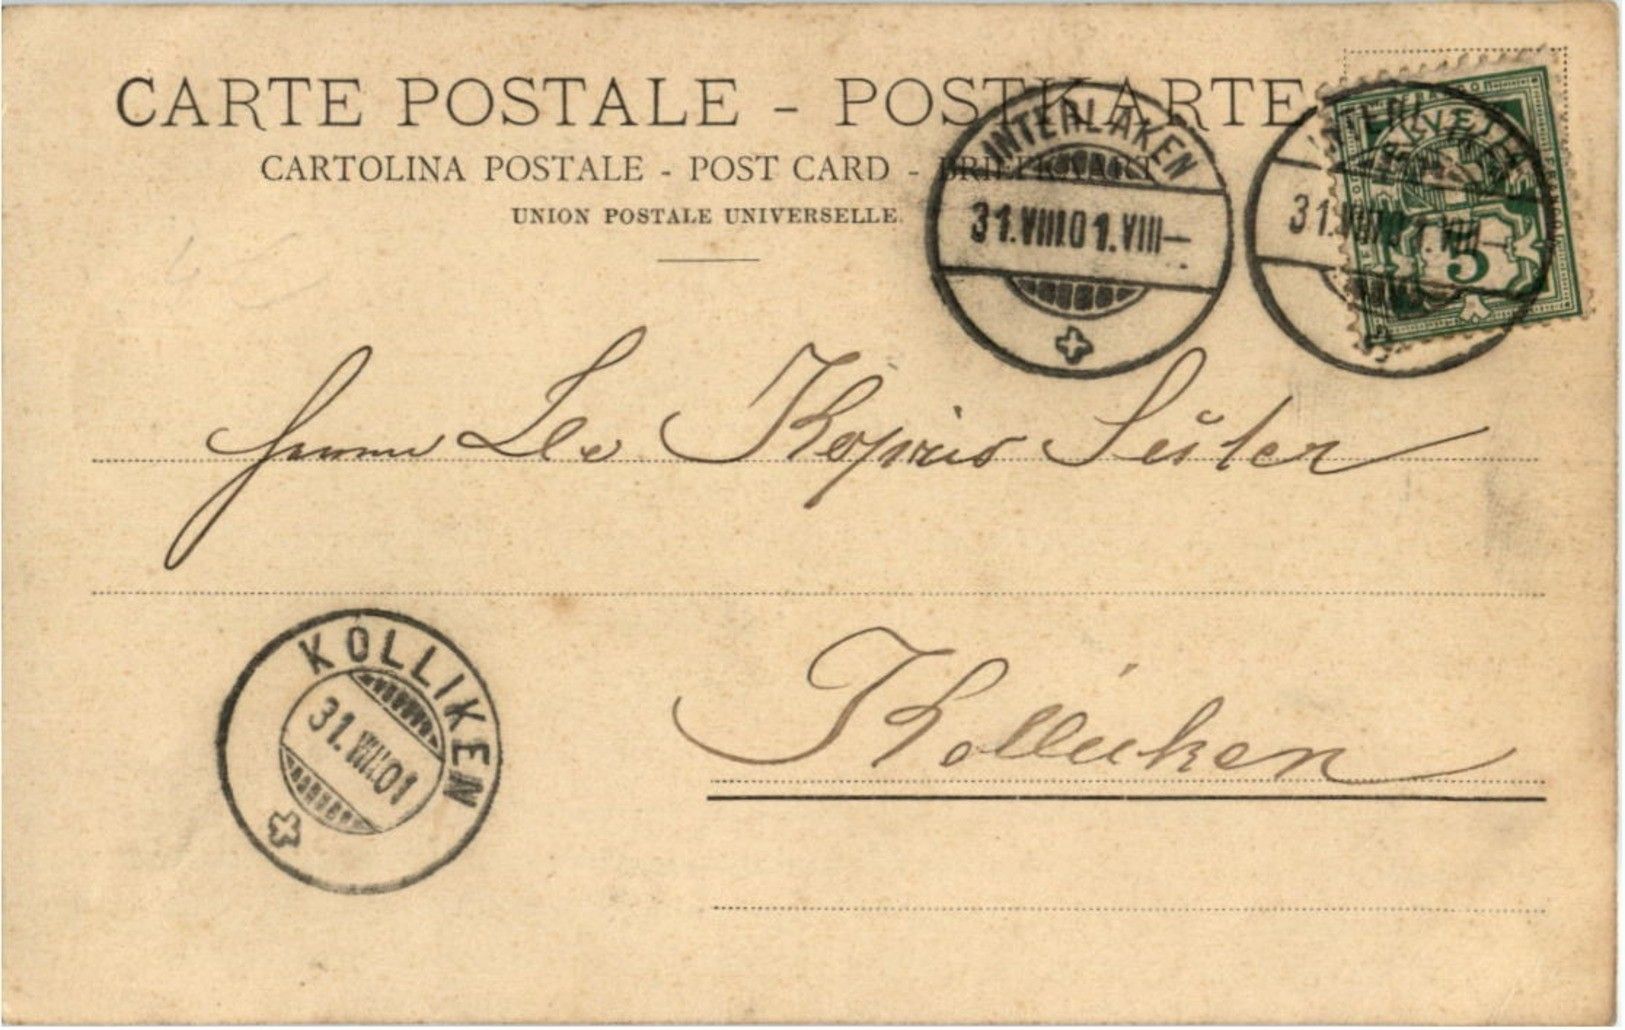 CARTE POSTALE - POSTKARTE
CARTOLINA POSTALE - POST CARD - BRIEFKAART
UNION POSTALE UNIVERSELLE
INTERLAKEN
31.VIII.01.VIII—
31.VIII.01.VIII—
HELVETIA
5
Herrn
Kölliken
KÖLLIKEN
31.VIII.01